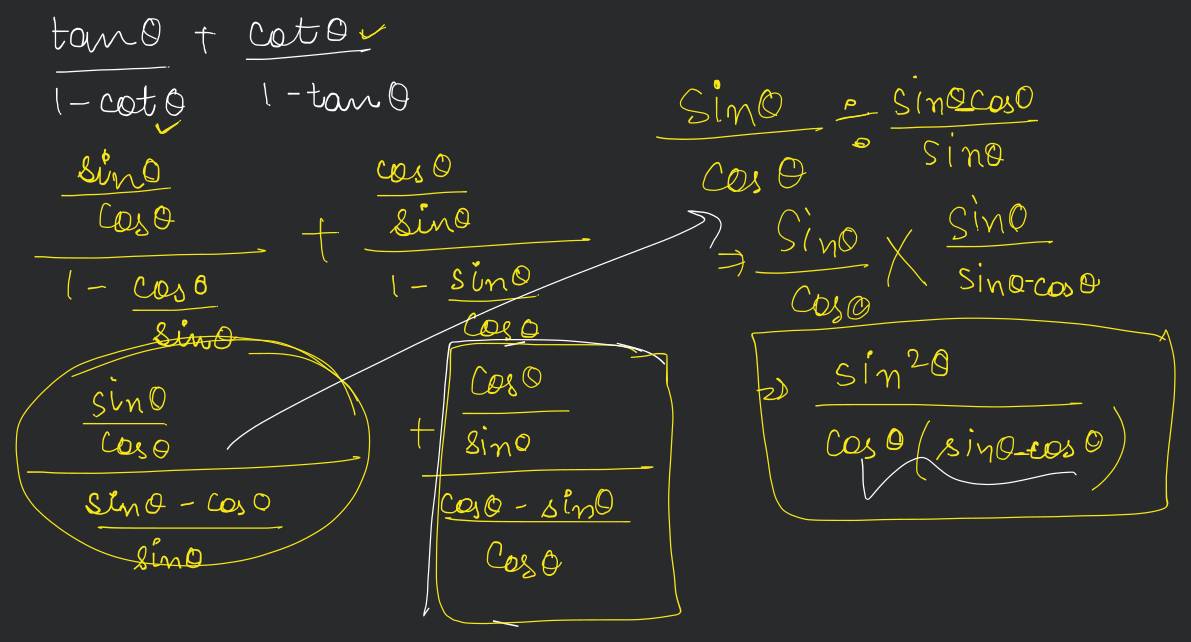 tanθ + cotθ
1-cotθ 1-tanθ
sinθ
cosθ
1 - cosθ
sinθ
+
cosθ
sinθ
1 - sinθ
cosθ
sinθ
cosθ
sinθ - cosθ
sinθ
+
cosθ
sinθ
cosθ - sinθ
cosθ
sinθ ÷ sinθ-cosθ
cosθ sinθ
⇒ sinθ × sinθ
cosθ sinθ-cosθ
⇒ sin²θ
cosθ(sinθ-cosθ)